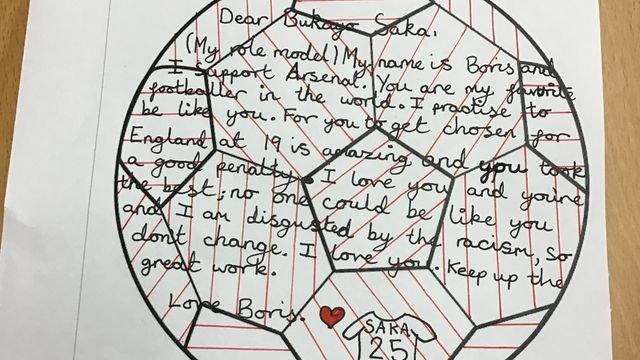 Dear Bukayo Saka,
(My role model) My name is Boris and
I support Arsenal. You are my favourite
footballer in the world. I practise to
be like you. For you to get chosen for
England at 19 is amazing and you took
a good penalty. I love you and you're
the best; no one could be like you
and I am disgusted by the racism, so
don't change. I love you. Keep up the
great work.
Love Boris.
SAKA
25